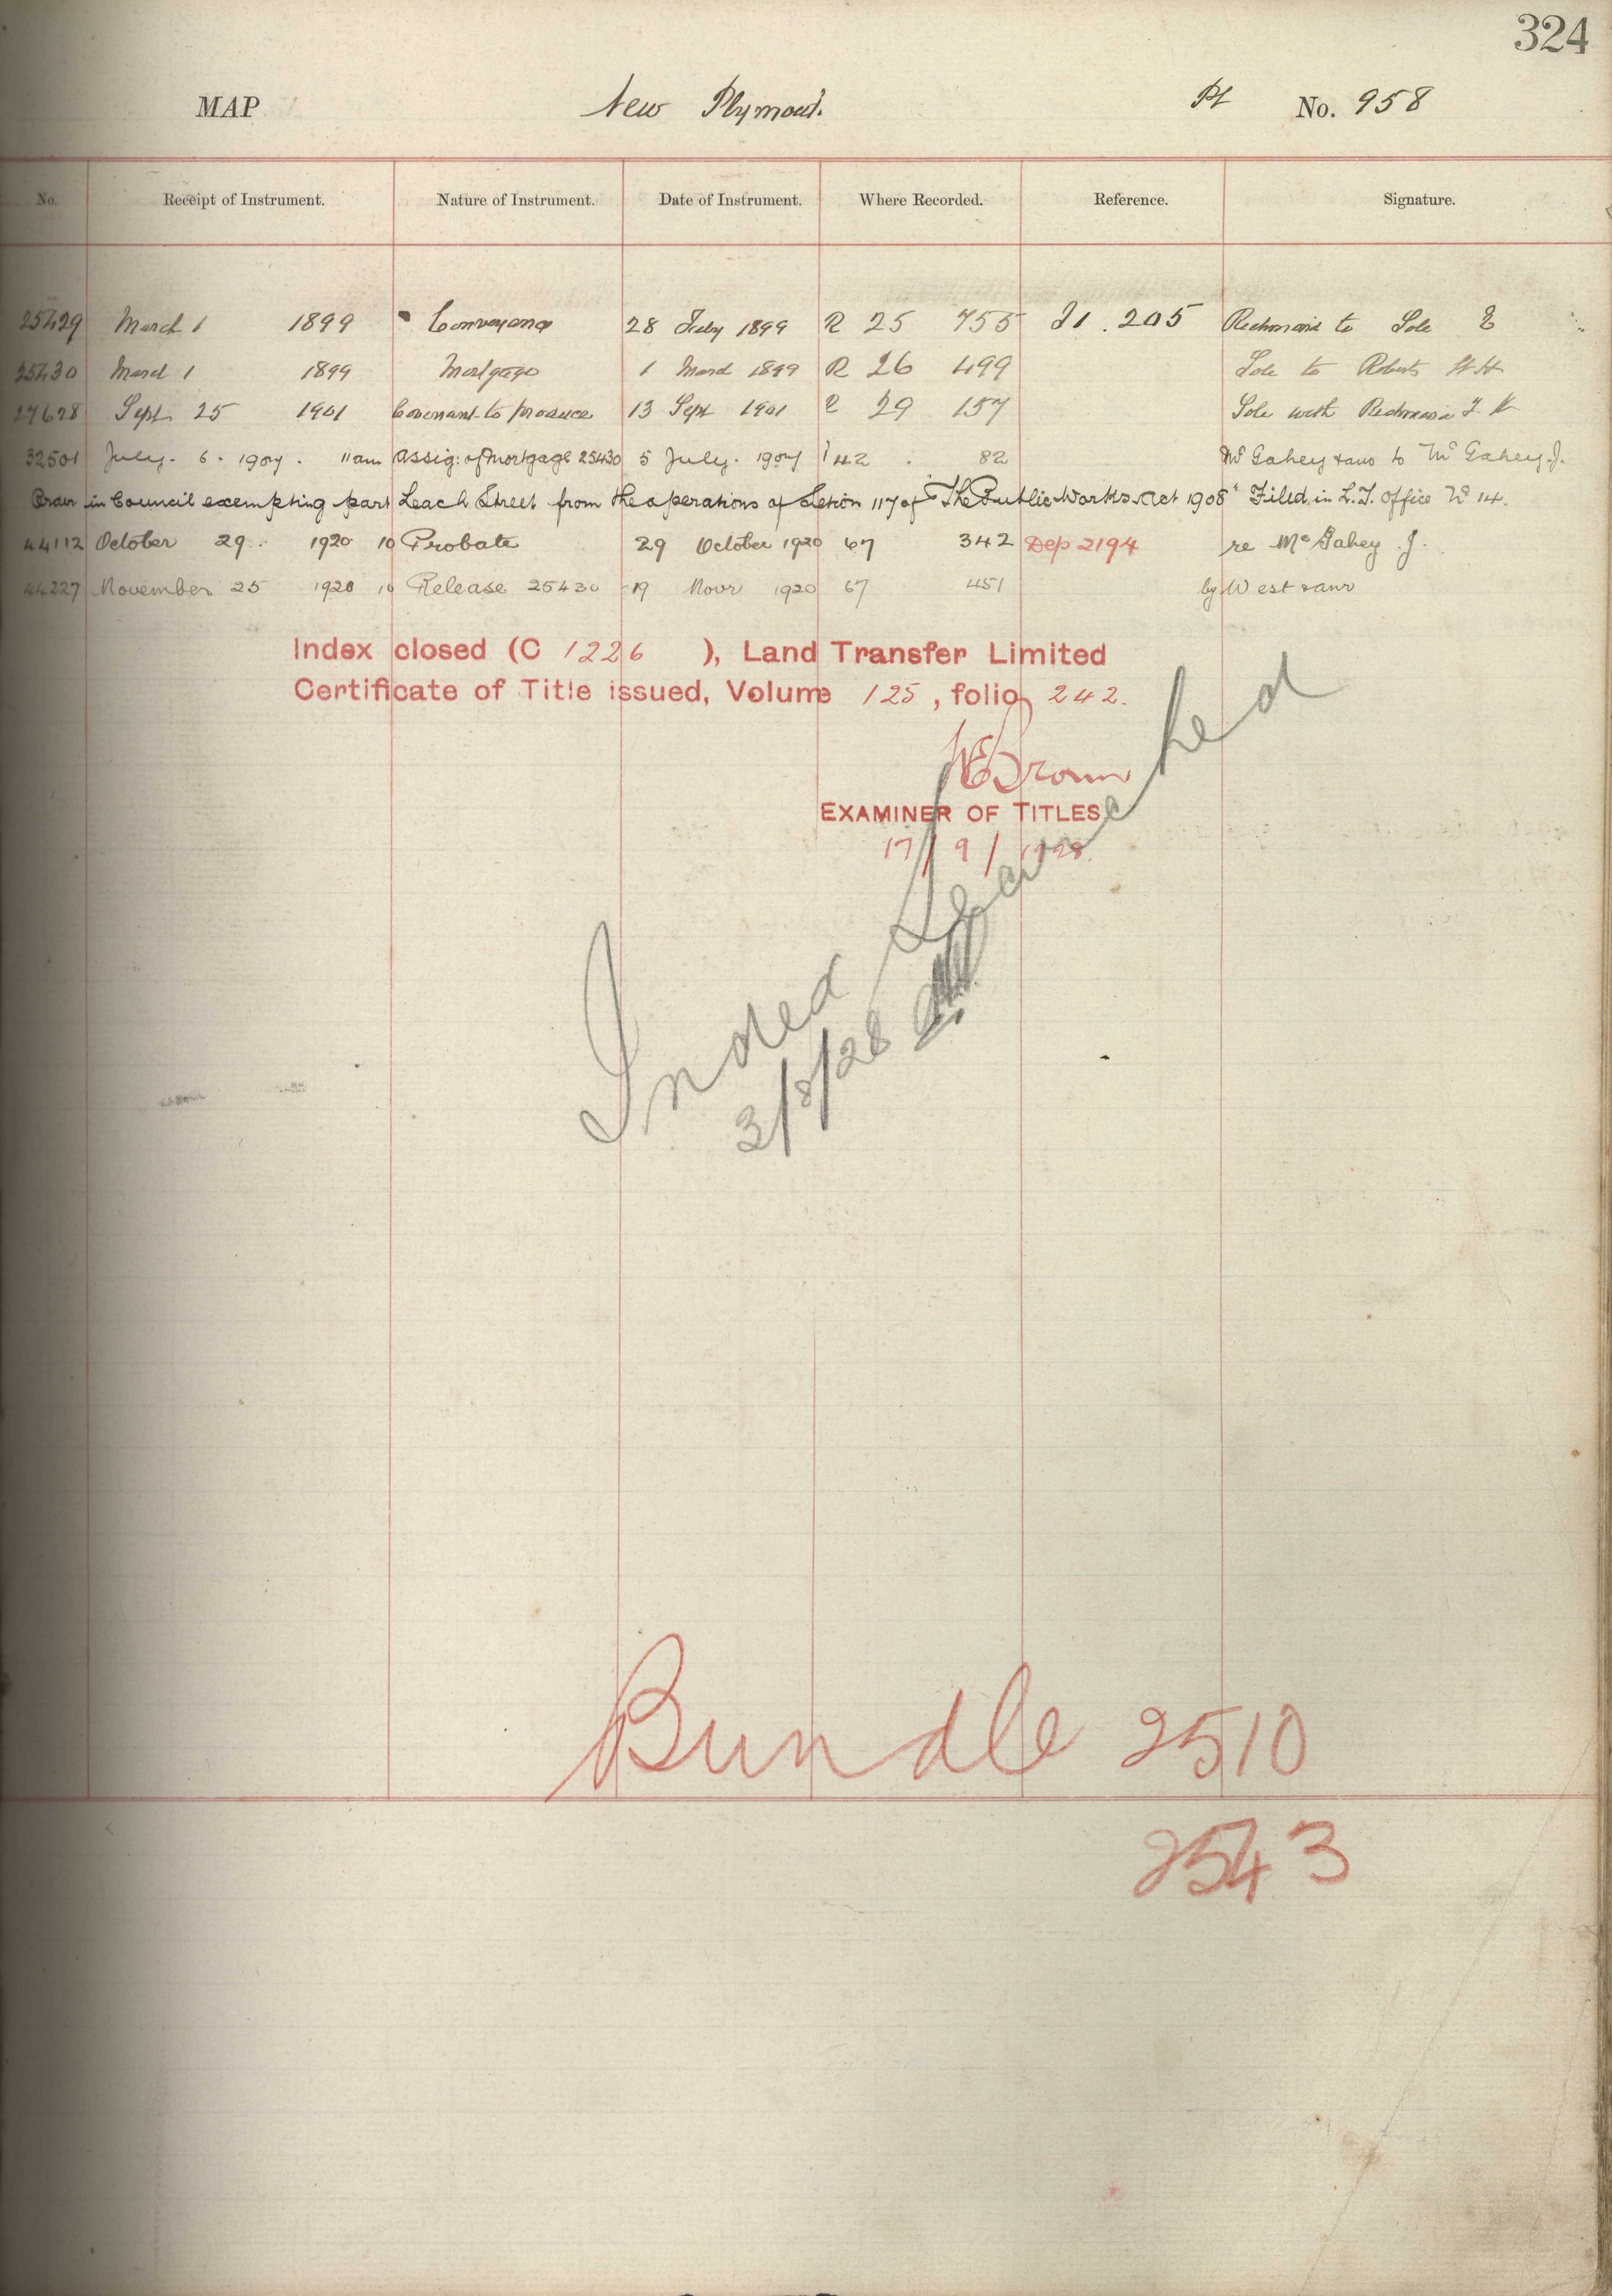 324
MAP New Plymouth. Pt No. 958
No. Receipt of Instrument. Nature of Instrument. Date of Instrument. Where Recorded. Reference. Signature.
25429 March 1 1899 Conveyance 28 Feby 1899 R 25 755 I1. 205 to Sole E
25430 March 1 1899 Mortgage 1 March 1899 R 26 499 Sole to Roberts
27628 Sept 25 1901 Covenant to produce 13 Sept 1901 R 29 157 Sole with
32501 July. 6. 1907. 11am Assig: of Mortgage 25430 5 July. 1907 42 82 McGahey & anr to McGahey. J.
Order in Council exempting part Leach Street from the operations of Section 117 of "The Public Works Act 1908" Filed in L.T. Office No 14.
44112 October 29. 1920 10 Probate 29 October 1920 67 342 Dep 2194 re McGahey. J.
44227 November 25 1920 10 Release 25430 19 Novr 1920 67 451 by West & anr
Index closed (C 1226 ), Land Transfer Limited
Certificate of Title issued, Volume 125, folio 242.
EXAMINER OF TITLES
17/9/1928.
Index Searched
3/8/28
Bundle 2510
2543